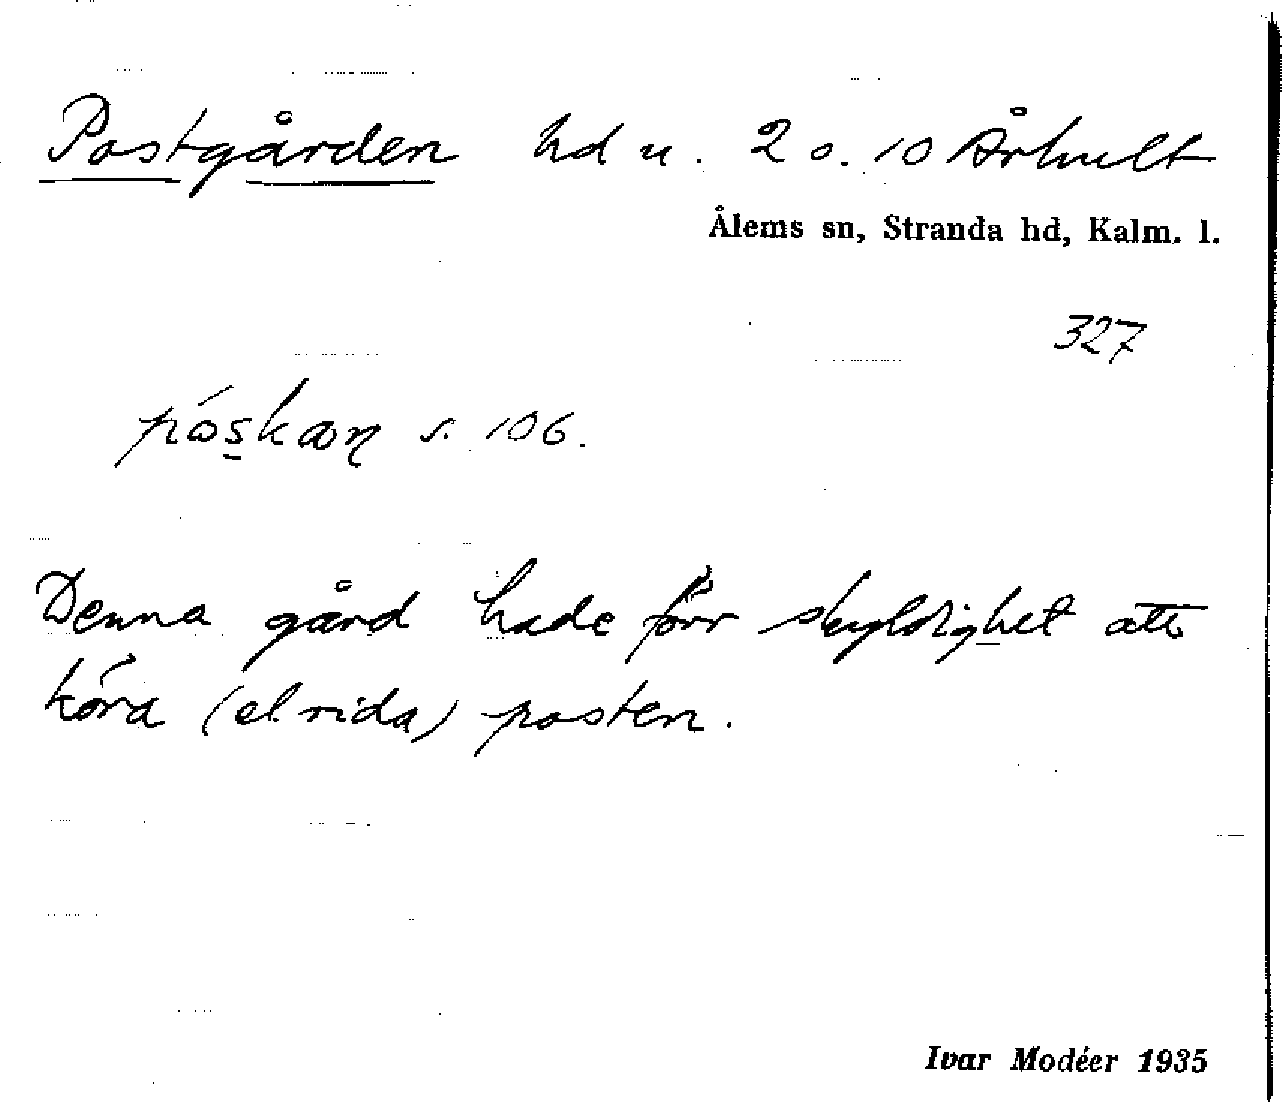 Postgården hd u. 2 o. 10 Århult
Ålems sn, Stranda hd, Kalm. l.
327
s. 106.
Denna gård hade förr skyldighet att
köra (el. rida) posten.
Ivar Modéer 1935